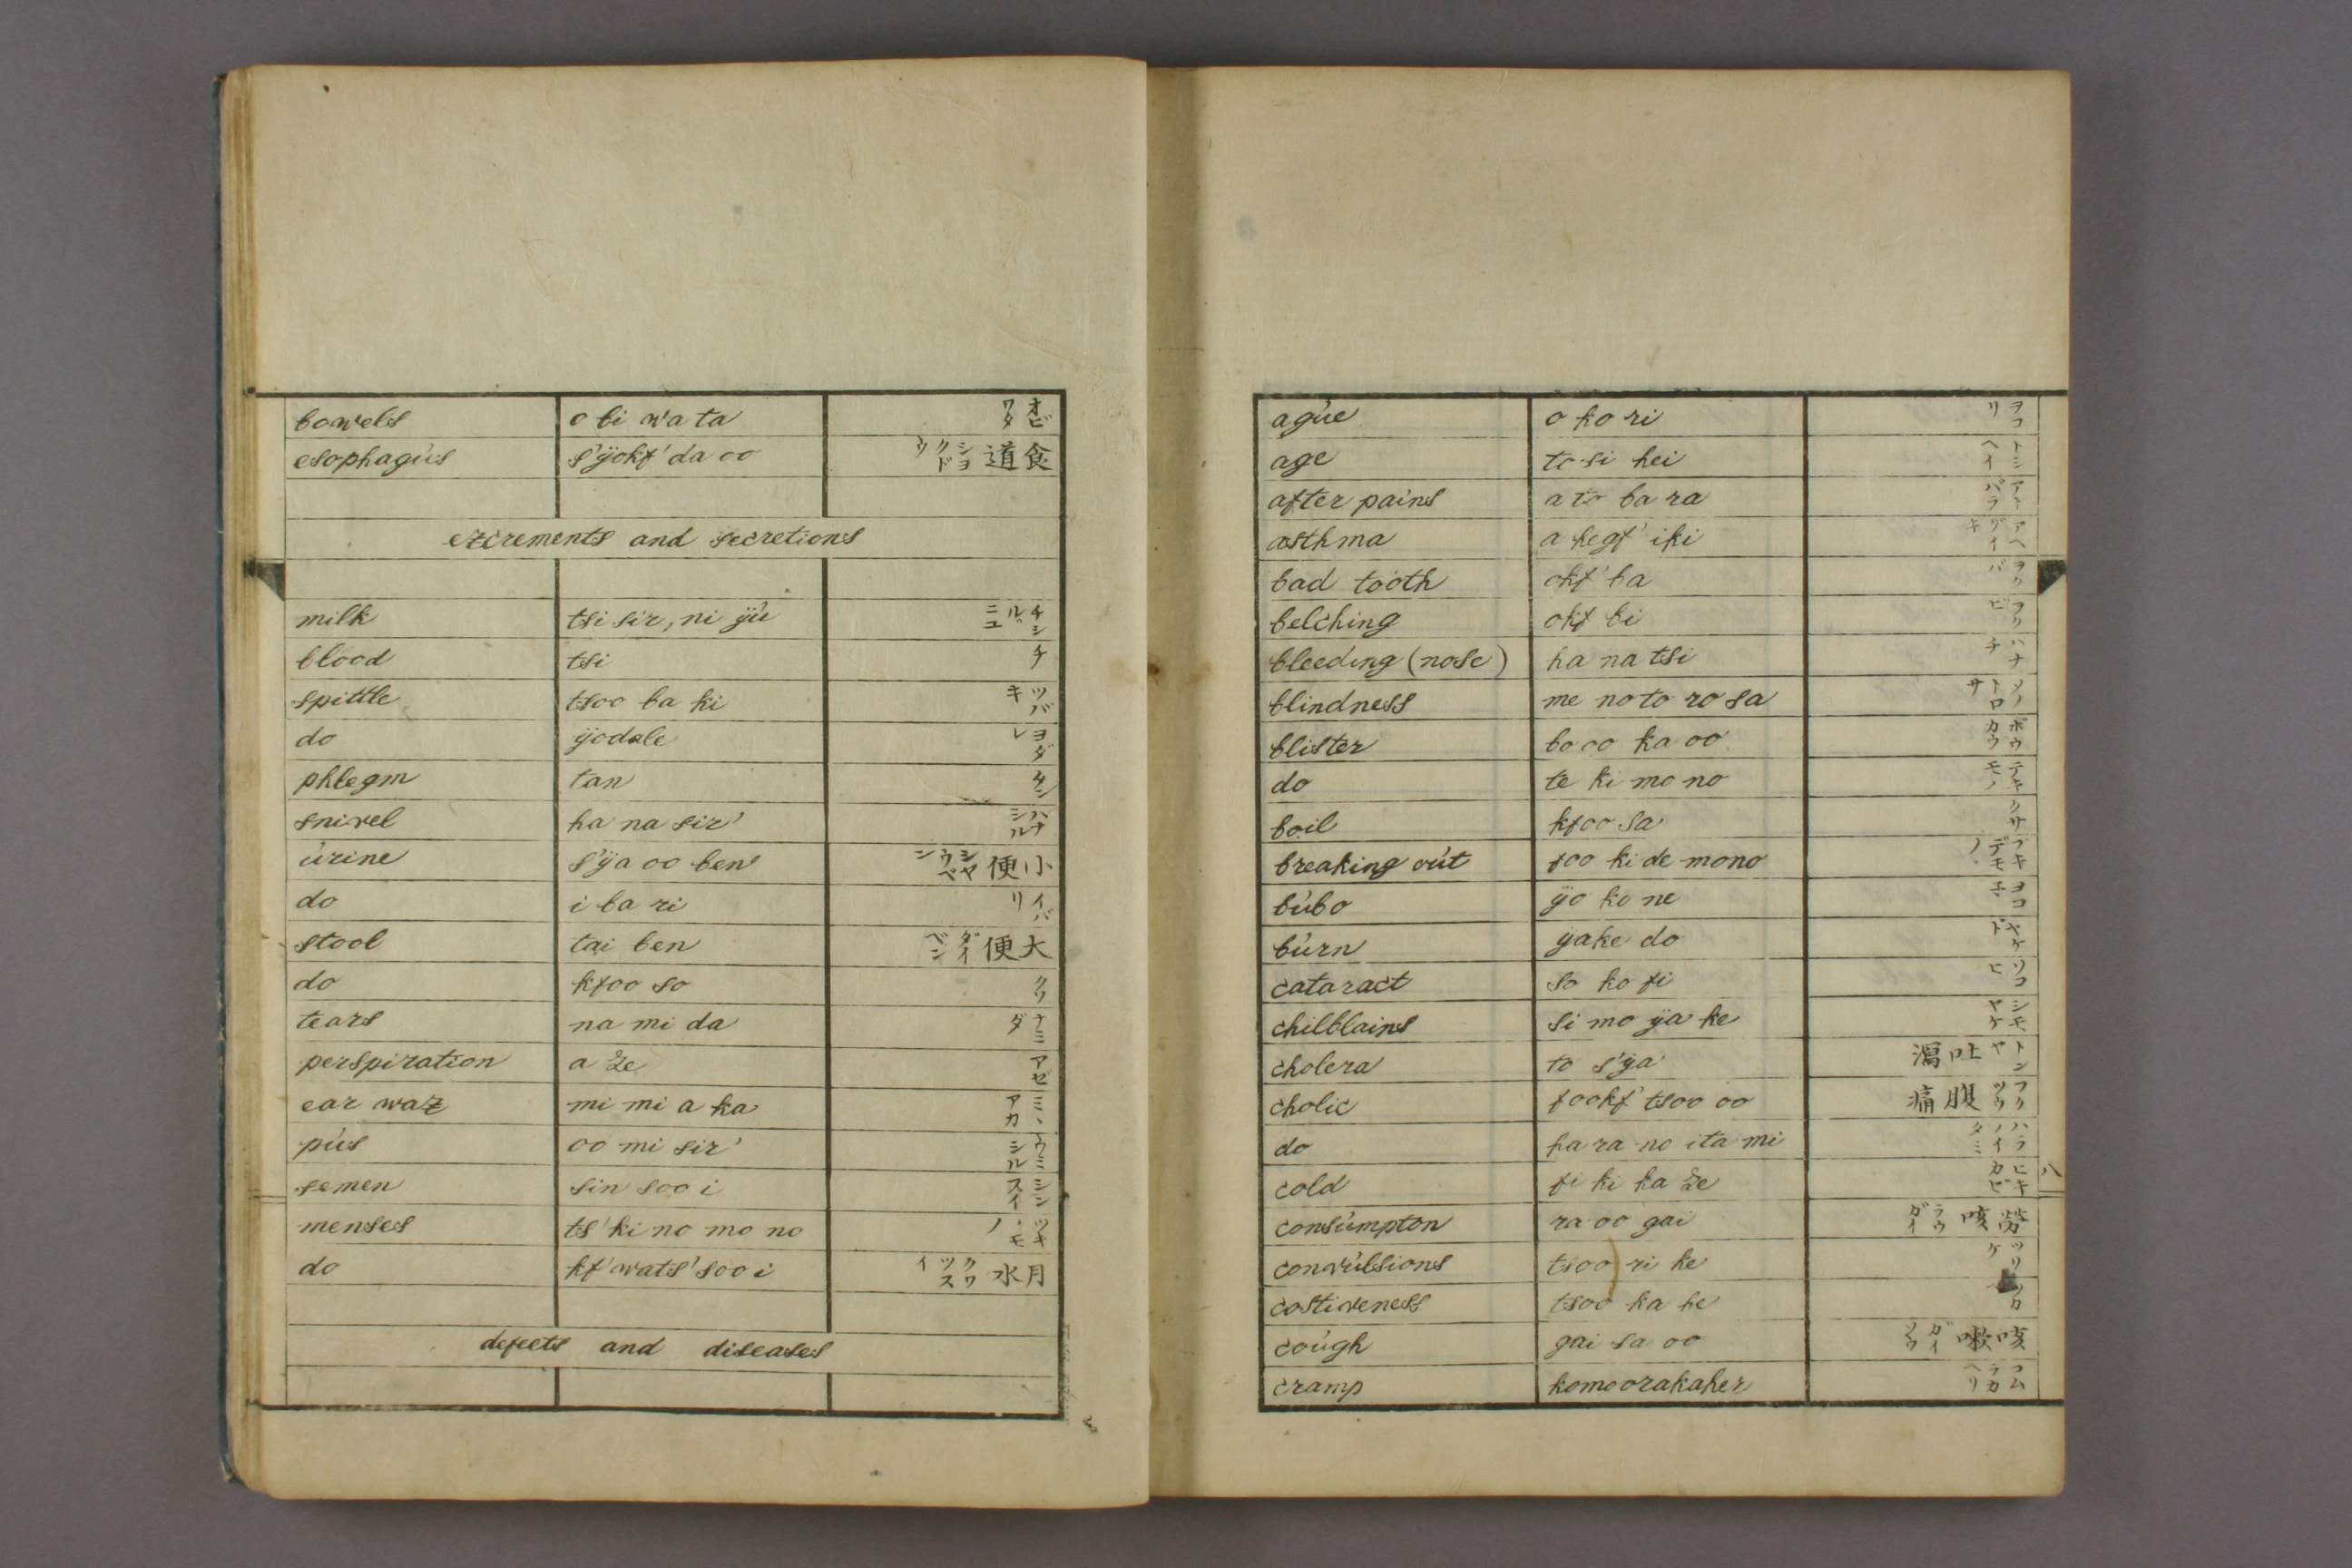 bowels o bi wa ta オビワタ
esophagus s'ÿokf' da oo 食道 ショクドウ
excrements and secretions
milk tsi sir, ni ÿu チシル ニユ
blood tsi チ
spittle tsoo ba ki ツバキ
do ÿodale ヨダレ
phlegm tan タン
snivel ha na sir' ハナシル
urine s'ÿa oo ben 小便 シヤウベン
do i ba ri イバリ
stool tai ben 大便 ダイベン
do kfoo so クソ
tears na mi da ナミダ
perspiration a ze アセ
ear wax mi mi a ka ミヽアカ
pus oo mi sir' ウミシル
semen sin soo i シンスイ
menses ts' ki no mo no ツキノモノ
do kf' wats' soo i 月水 クワツスイ
defects and diseases
ague o ko ri ヲコリ
age to si hei トシヘイ
after pains a to ba ra アトバラ
asthma a hegf' iki アヘグイキ
bad tooth okf' ba ヲクバ
belching okf bi ヲクビ
bleeding (nose) ha na tsi ハナチ
blindness me no to ro sa メノトロサ
blister bo oo ka oo ボウカウ
do te ki mo no テキモノ
boil kfoo sa クサ
breaking out foo ki de mono フキデモノ
bubo ÿo ko ne ヨコ子
burn ÿake do ヤケド
cataract so ko fi ソコヒ
chilblains si mo ÿa ke シモヤケ
cholera to s'ÿa 吐瀉 トシヤ
cholic fookf' tsoo oo 腹痛 フクツウ
do ha ra no ita mi ハラノイタミ
cold fi ki ka ze ヒキカゼ
八
consumpton ra oo gai 労咳 ラウガイ
convulsions tsoo ri ke ツリケ
costiveness tsoo ka he
cough gai sa oo 咳嗽 ガイソウ
cramp komoorakaher コムラカヘリ